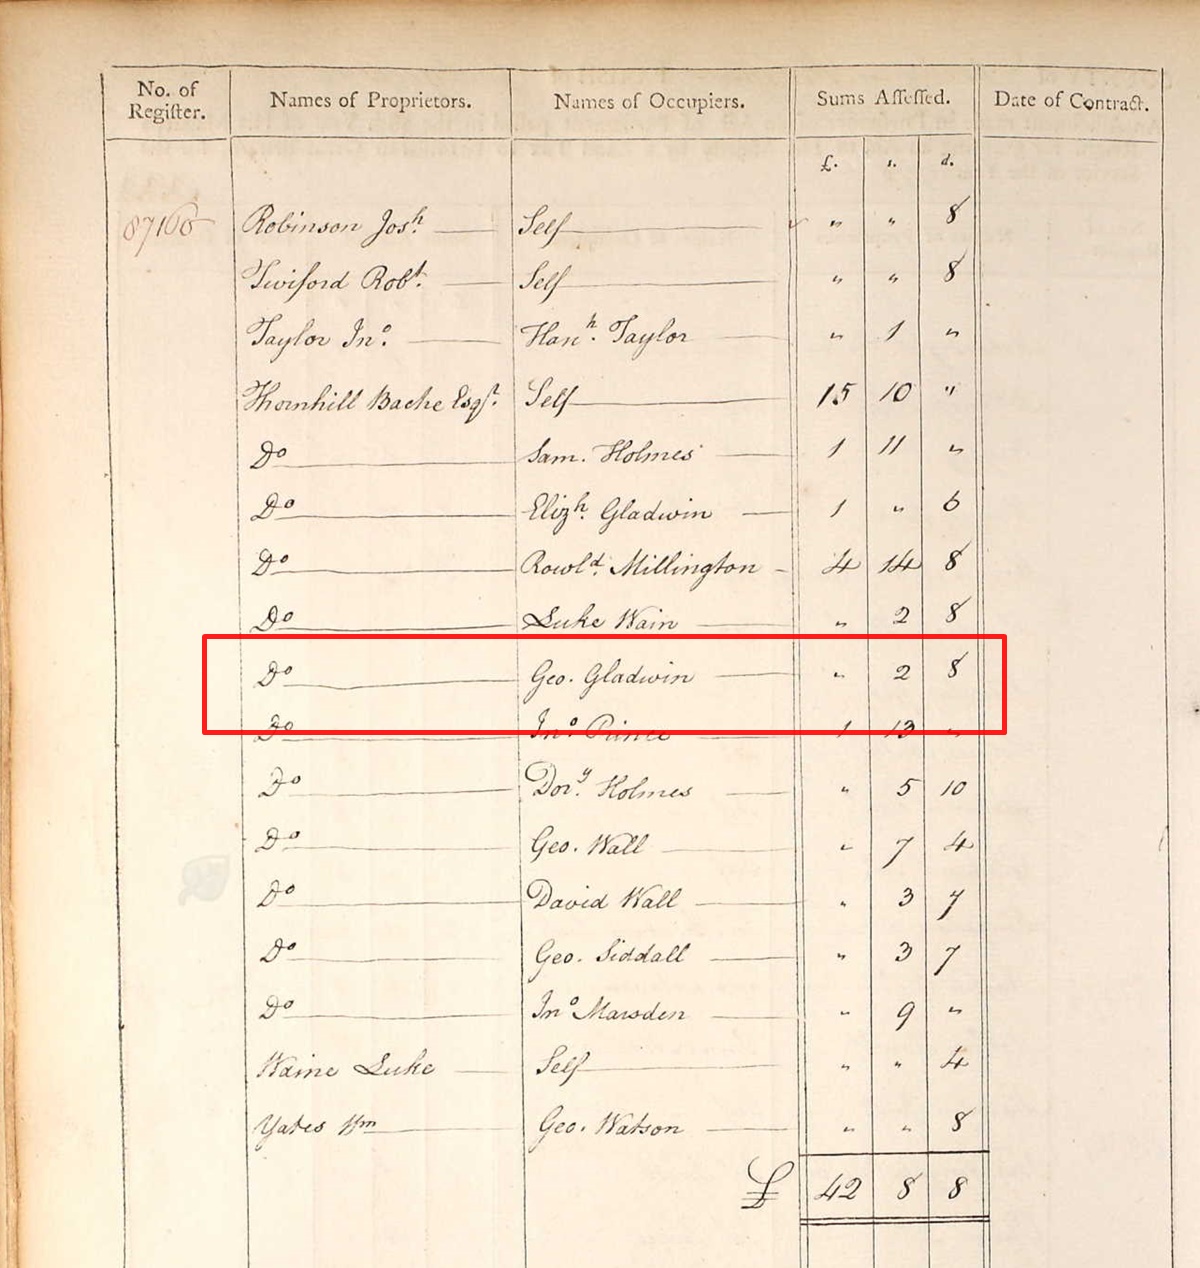 No. of Register. Names of Proprietors. Names of Occupiers. Sums Assessed. Date of Contract.
£. s. d.
87166 Robinson Josh Self " " 8
Twiford Robt. Self " " 8
Taylor Jno. Hanh. Taylor " 1 "
Thornhill Bache Esqr. Self 15 10 "
Do Sam. Holmes 1 11 "
Do Elizh. Gladwin 1 " 6
Do Rowld. Millington 4 14 8
Do Luke Wain " 2 8
Do Geo. Gladwin " 2 8
Do Jno. Prince 1 13 "
Do Dory. Holmes " 5 10
Do Geo. Wall " 7 4
Do David Wall " 3 7
Do Geo. Siddall " 3 7
Do Jno Marsden " 9 "
Waine Luke Self " " 4
Yates Wm Geo. Watson " " 8
£ 42 8 8